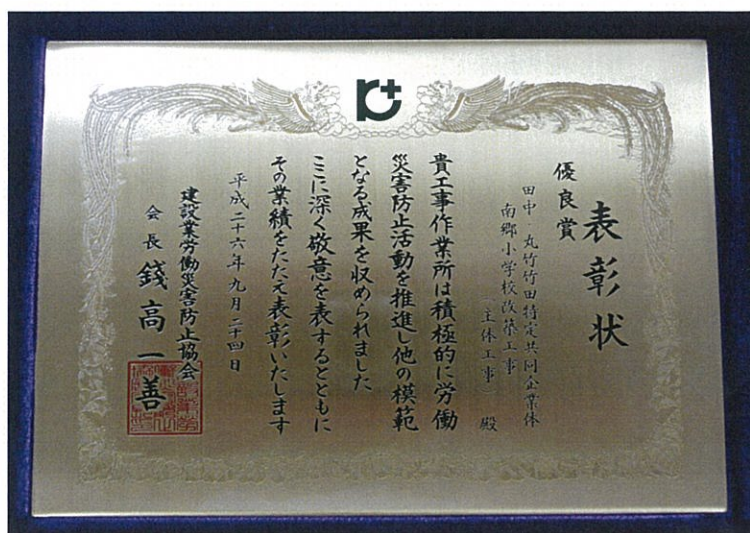 表彰状
優良賞
田中・丸竹竹田特定共同企業体
南郷小学校改築工事
(主体工事) 殿
貴工事作業所は積極的に労働
災害防止活動を推進し他の模範
となる成果を収められました
ここに深く敬意を表するとともに
その業績をたたえ表彰いたします
平成二十六年九月二十四日
建設業労働災害防止協会
会長 錢高一善